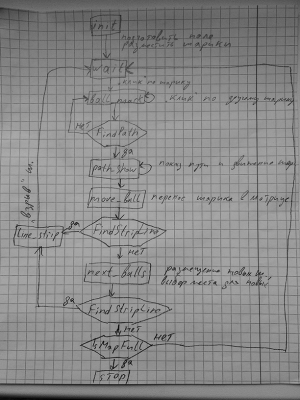 init
подготовить поле
разместить шарики
wait
клик по шарику
ball_mark
"клик" по другому шарику
нет
FindPath
да
path_show
показ пути и движение шар.
move_ball
перенос шарика в матрице
"взрыв" ш.
line_strip
да
FindStripLine
нет
next_balls
размещение новых и
выбор места для новых
да
FindStripLine
нет
isMapFull
нет
да
STOP